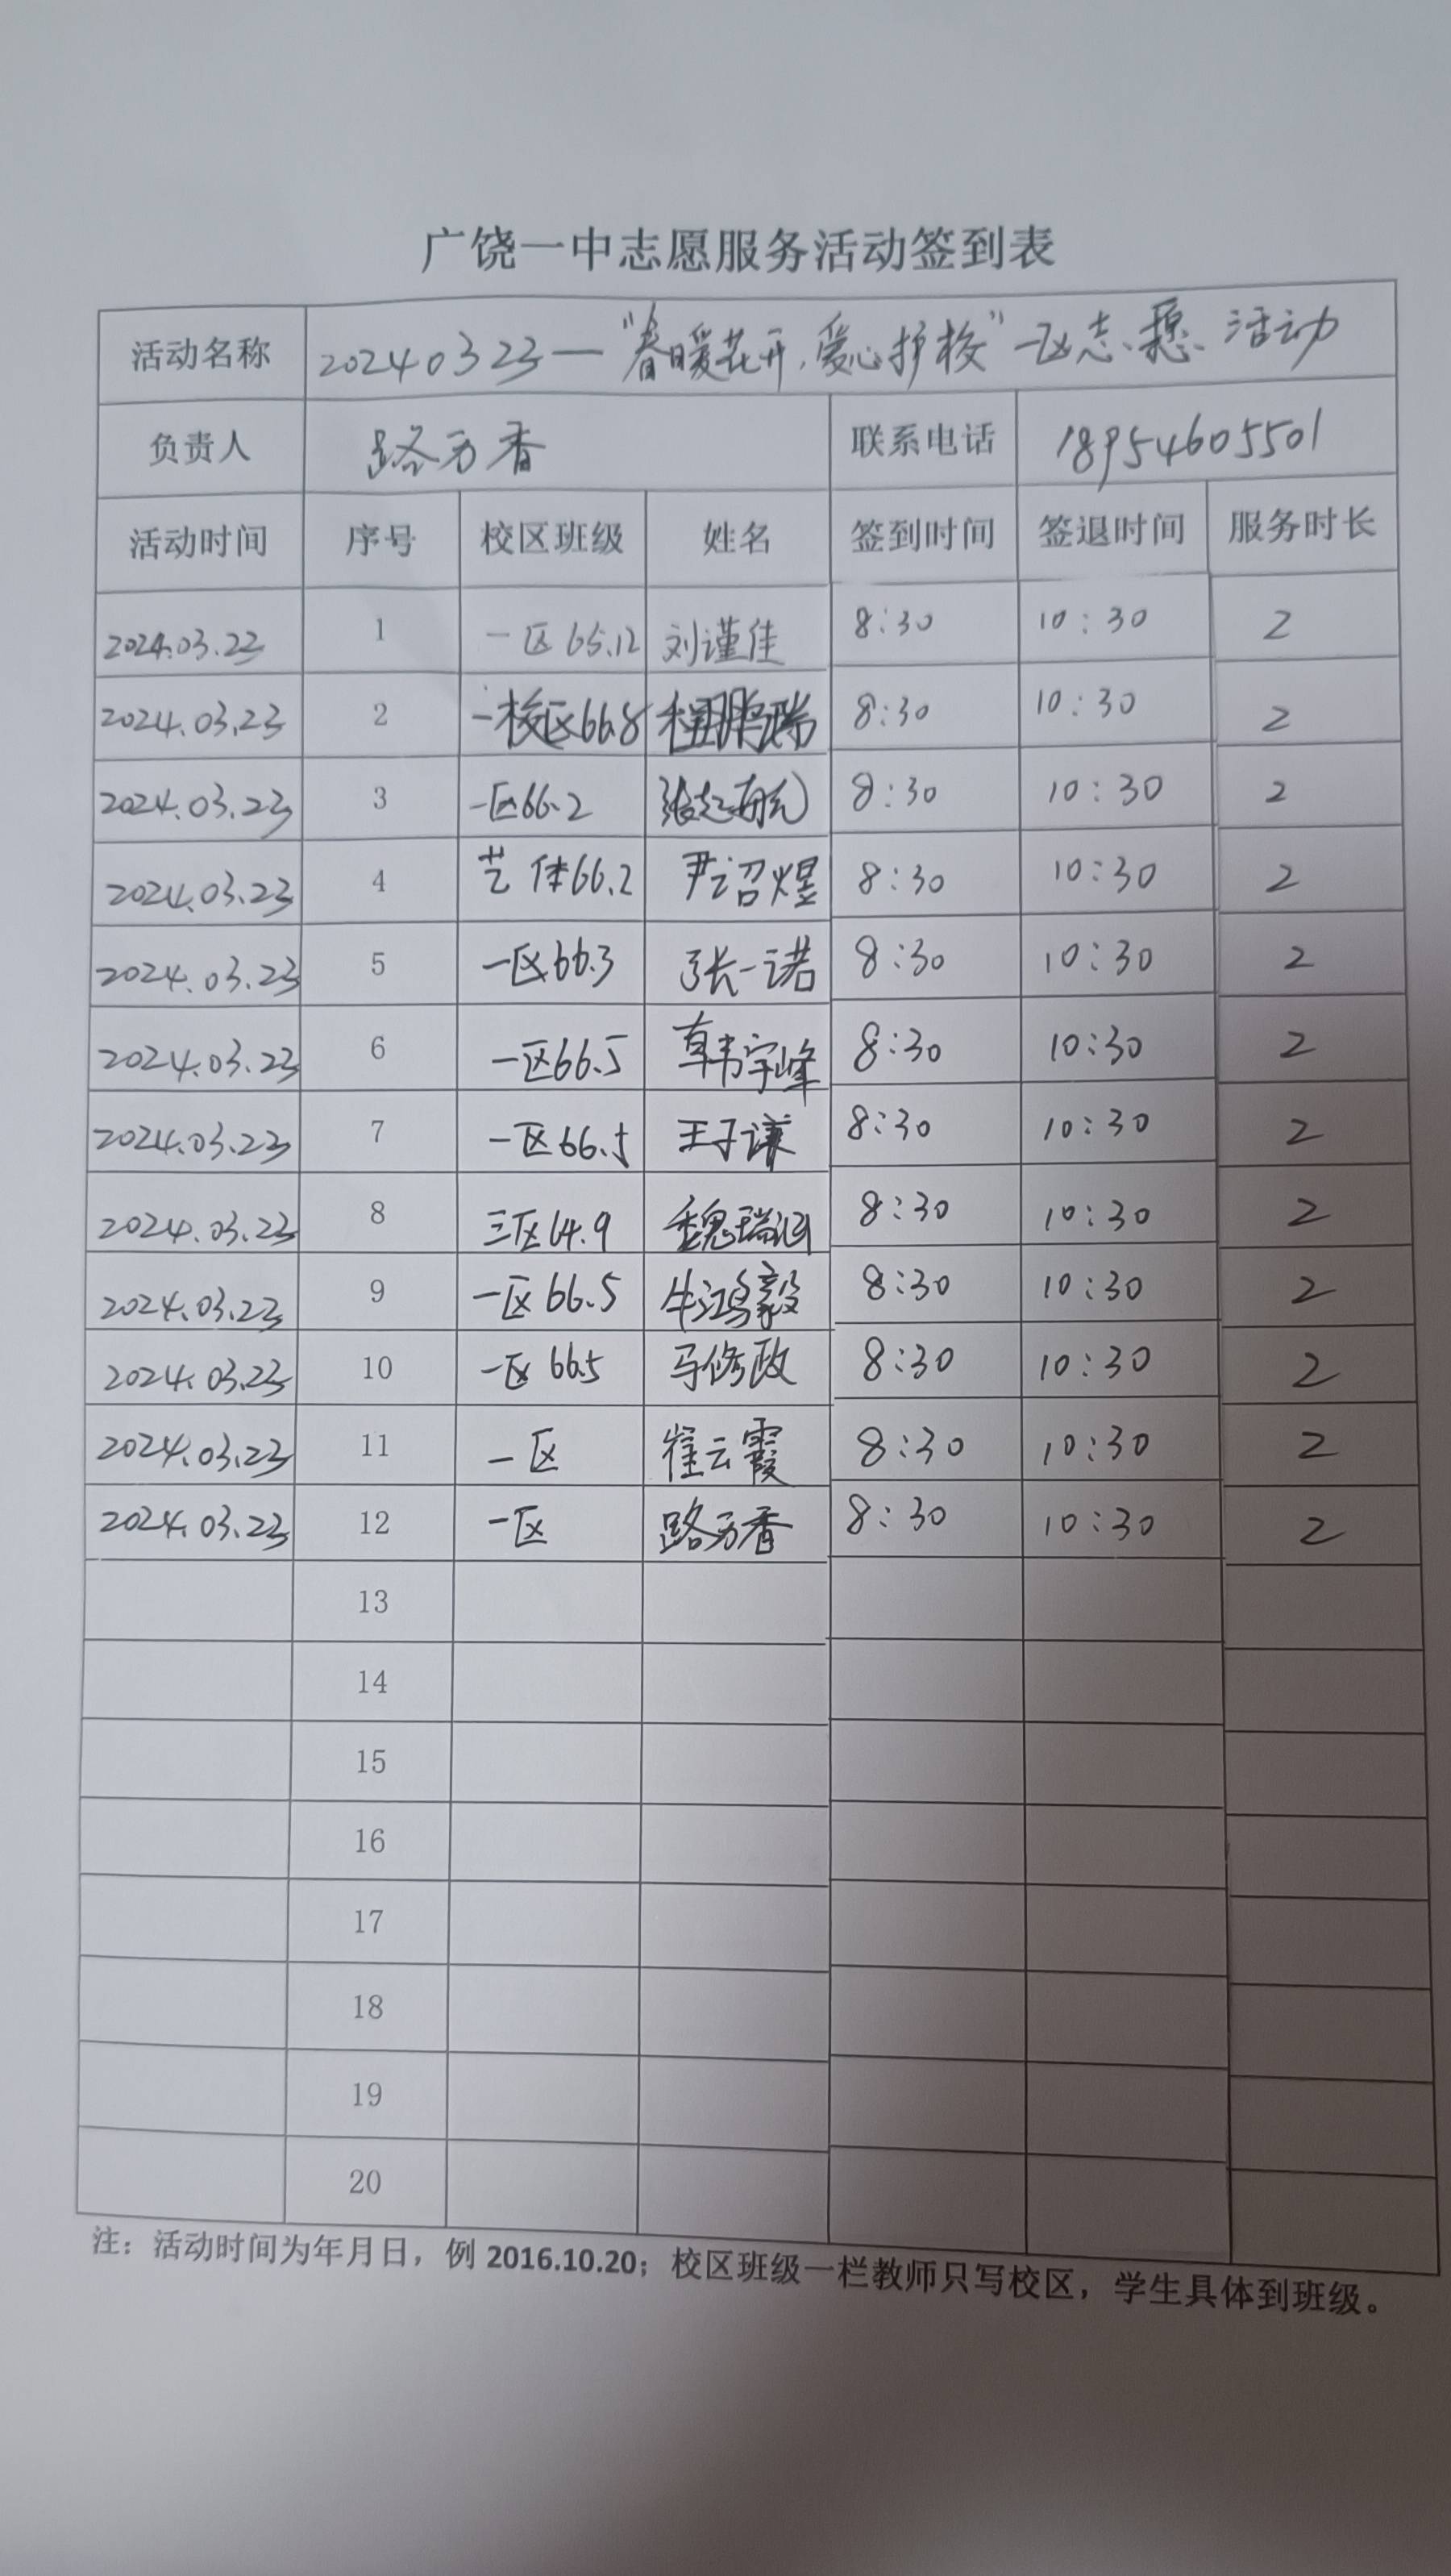 广饶一中志愿服务活动签到表
活动名称 20240323—"春日暖花开,爱心护校"一区志愿活动
负责人 路万香 联系电话 18954605501
活动时间 序号 校区班级 姓名 签到时间 签退时间 服务时长
2024.03.23 1 一区65.12 刘谨佳 8:30 10:30 2
2024.03.23 2 一校区66.8 程鹏瑞 8:30 10:30 2
2024.03.23 3 一区66.2 张起航 8:30 10:30 2
2024.03.23 4 艺体66.2 尹诏煜 8:30 10:30 2
2024.03.23 5 一区66.3 张一诺 8:30 10:30 2
2024.03.23 6 一区66.5 韩宇峰 8:30 10:30 2
2024.03.23 7 一区66.5 王子谦 8:30 10:30 2
2024.03.23 8 三区64.9 魏瑞涵 8:30 10:30 2
2024.03.23 9 一区66.5 牛鸿毅 8:30 10:30 2
2024.03.23 10 一区66.5 马修政 8:30 10:30 2
2024.03.23 11 一区 崔云霞 8:30 10:30 2
2024.03.23 12 一区 路万香 8:30 10:30 2
13
14
15
16
17
18
19
20
注：活动时间为年月日，例 2016.10.20；校区班级一栏教师只写校区，学生具体到班级。